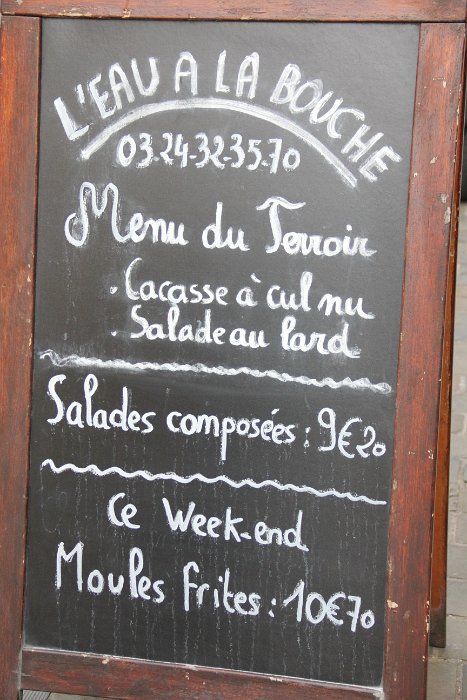 L'EAU A LA BOUCHE
03.24.32.35.70
Menu du Terroir
. Cacasse à cul nu
. Salade au lard
Salades composées : 9€20
Ce Week-end
Moules Frites : 10€70